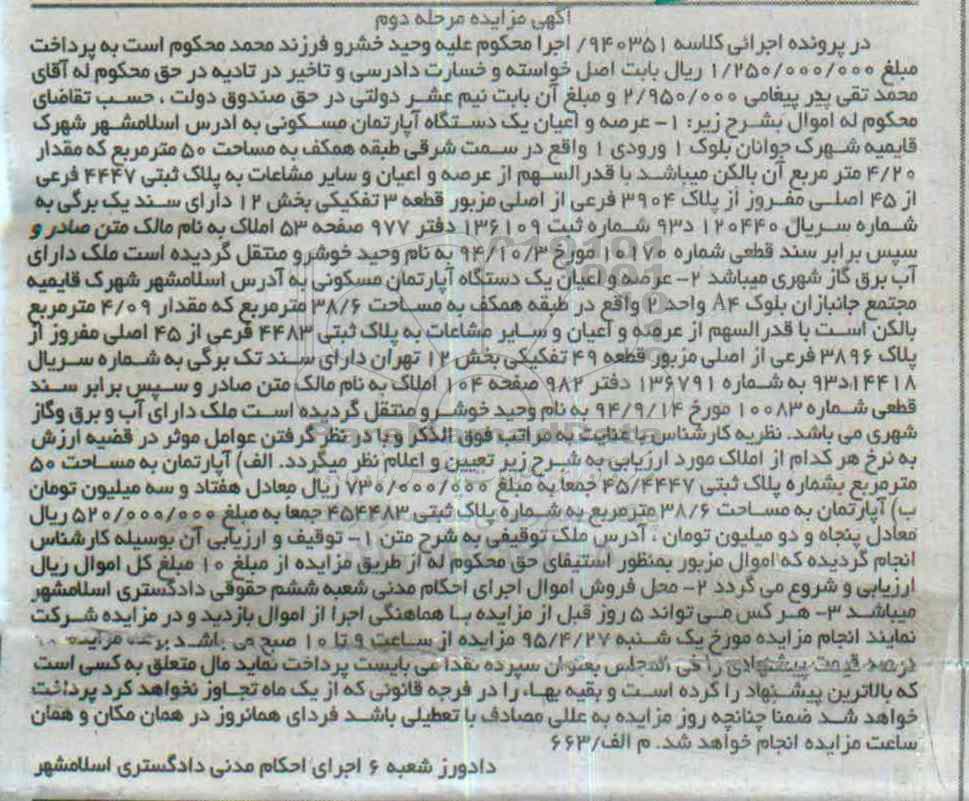 آگهی مزایده مرحله دوم
در پرونده اجرائی کلاسه ۹۴۰۳۵۱/ اجرا محکوم علیه وحید خشرو فرزند محمد محکوم است به پرداخت
مبلغ ۱/۲۵۰/۰۰۰/۰۰۰ ریال بابت اصل خواسته و خسارت دادرسی و تاخیر در تادیه در حق محکوم له آقای
محمد تقی پدر پیغامی ۲/۹۵۰/۰۰۰ و مبلغ آن بابت نیم عشر دولتی در حق صندوق دولت ، حسب تقاضای
محکوم له اموال بشرح زیر: ۱- عرصه و اعیان یک دستگاه آپارتمان مسکونی به ادرس اسلامشهر شهرک
قایمیه شهرک جوانان بلوک ۱ ورودی ۱ واقع در سمت شرقی طبقه همکف به مساحت ۵۰ مترمربع که مقدار
۴/۲۰ متر مربع آن بالکن میباشد با قدرالسهم از عرصه و اعیان و سایر مشاعات به پلاک ثبتی ۴۴۴۷ فرعی
از ۴۵ اصلی مفروز از پلاک ۳۹۰۴ فرعی از اصلی مزبور قطعه ۳ تفکیکی بخش ۱۲ دارای سند یک برگی به
شماره سریال ۱۲۰۴۴۰ د۹۳ شماره ثبت ۱۳۶۱۰۹ دفتر ۹۷۷ صفحه ۵۳ املاک به نام مالک متن صادر و
سپس برابر سند قطعی شماره ۱۰۱۷۰ مورخ ۹۴/۱۰/۳ به نام وحید خوشرو منتقل گردیده است ملک دارای
آب برق گاز شهری میباشد ۲- عرصه و اعیان یک دستگاه آپارتمان مسکونی به آدرس اسلامشهر شهرک قایمیه
مجتمع جانبازان بلوک A۴ واحد ۲ واقع در طبقه همکف به مساحت ۳۸/۶ مترمربع که مقدار ۴/۰۹ مترمربع
بالکن است با قدرالسهم از عرصه و اعیان و سایر مشاعات به پلاک ثبتی ۴۴۸۳ فرعی از ۴۵ اصلی مفروز از
پلاک ۳۸۹۶ فرعی از اصلی مزبور قطعه ۴۹ تفکیکی بخش ۱۲ تهران دارای سند تک برگی به شماره سریال
۱۴۴۱۸د۹۳ به شماره ۱۳۶۷۹۱ دفتر ۹۸۲ صفحه ۱۰۴ املاک به نام مالک متن صادر و سپس برابر سند
قطعی شماره ۱۰۰۸۳ مورخ ۹۴/۹/۱۴ به نام وحید خوشرو منتقل گردیده است ملک دارای آب و برق وگاز
شهری می باشد. نظریه کارشناس با عنایت به مراتب فوق الذکر و با در نظر گرفتن عوامل موثر در قضیه ارزش
به نرخ هر کدام از املاک مورد ارزیابی به شرح زیر تعیین و اعلام نظر میگردد. الف) آپارتمان به مساحت ۵۰
مترمربع بشماره پلاک ثبتی ۴۵/۴۴۴۷ جمعا به مبلغ ۷۳۰/۰۰۰/۰۰۰ ریال معادل هفتاد و سه میلیون تومان
ب) آپارتمان به مساحت ۳۸/۶ مترمربع به شماره پلاک ثبتی ۴۵۴۴۸۳ جمعا به مبلغ ۵۲۰/۰۰۰/۰۰۰ ریال
معادل پنجاه و دو میلیون تومان ، آدرس ملک توقیفی به شرح متن ۱- توقیف و ارزیابی آن بوسیله کارشناس
انجام گردیده که اموال مزبور بمنظور استیفای حق محکوم له از طریق مزایده از مبلغ ۱۰ مبلغ کل اموال ریال
ارزیابی و شروع می گردد ۲- محل فروش اموال اجرای احکام مدنی شعبه ششم حقوقی دادگستری اسلامشهر
میباشد ۳- هر کس می تواند ۵ روز قبل از مزایده با هماهنگی اجرا از اموال بازدید و در مزایده شرکت
نمایند انجام مزایده مورخ یک شنبه ۹۵/۴/۲۷ مزایده از ساعت ۹ تا ۱۰ صبح می باشد برنده مزایده ۱۰
درصد قیمت پیشنهادی را فی المجلس بعنوان سپرده نقدا می بایست پرداخت نماید مال متعلق به کسی است
که بالاترین پیشنهاد را کرده است و بقیه بهاء را در فرجه قانونی که از یک ماه تجاوز نخواهد کرد پرداخت
خواهد شد ضمنا چنانچه روز مزایده به عللی مصادف با تعطیلی باشد فردای همانروز در همان مکان و همان
ساعت مزایده انجام خواهد شد. م الف/۶۶۳
دادورز شعبه ۶ اجرای احکام مدنی دادگستری اسلامشهر